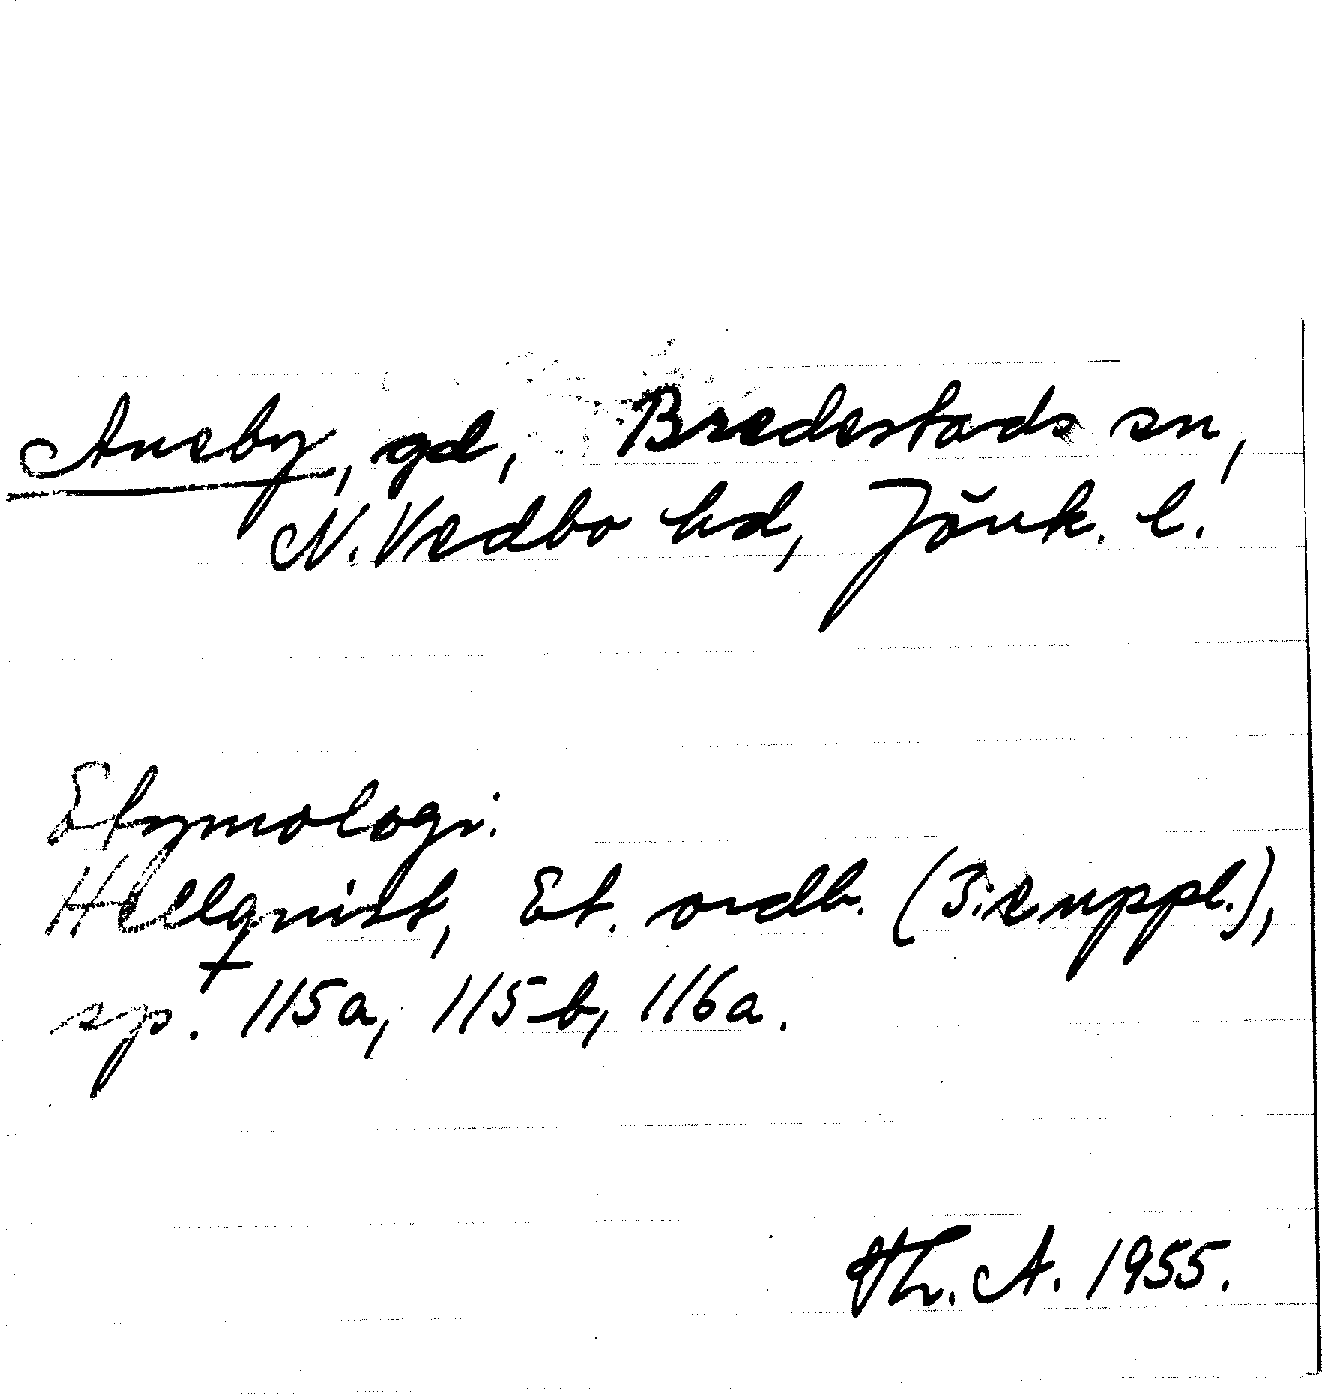 Aneby, gd, Bredestads sn,
N. Vedbo hd, Jönk. l.
Etymologi.
Hellquist, Et. ordb. (3:e uppl.),
sp. 115a, 115b, 116a.
Th. A. 1955.